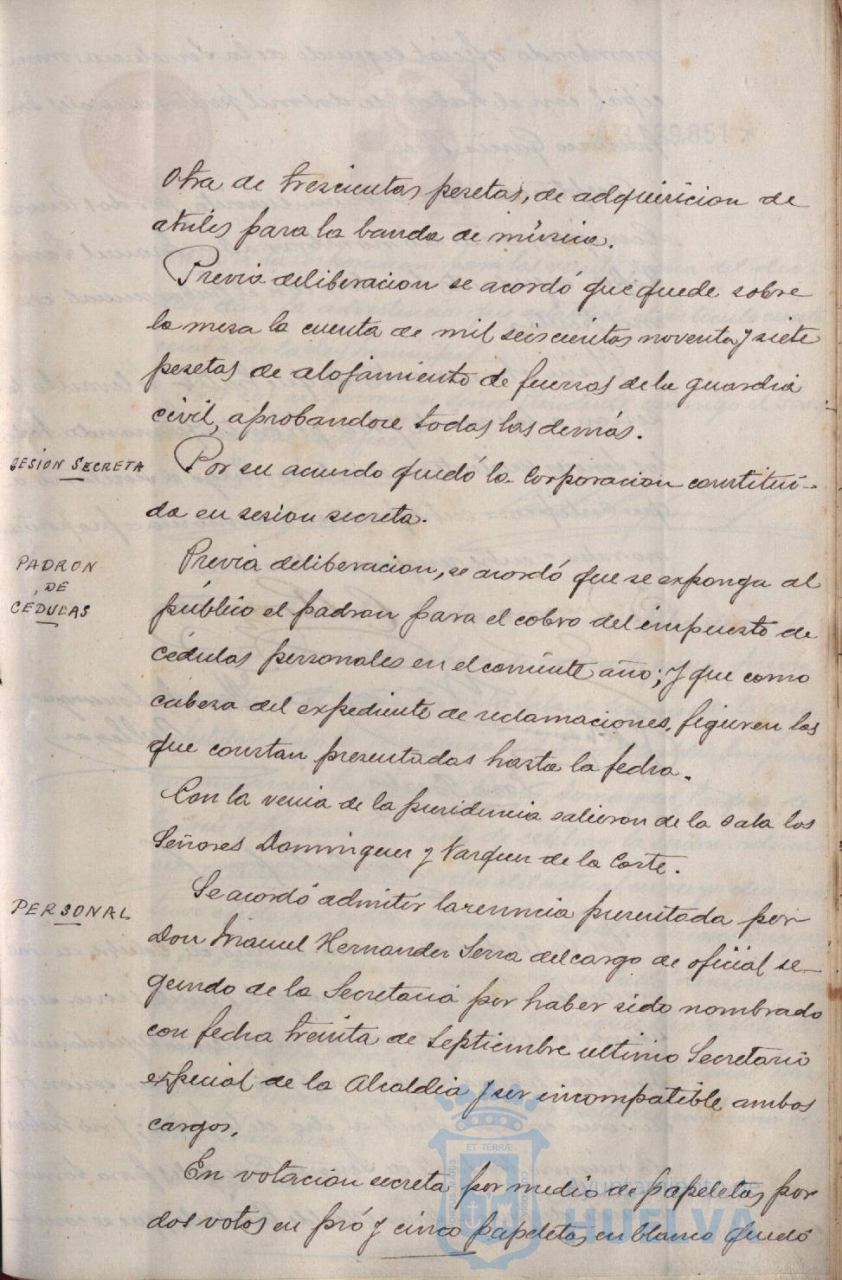 Otra de trescientas pesetas, de adquisicion de
atriles para la banda de música.
Previa deliberacion se acordó que quede sobre
la mesa la cuenta de mil seiscientas noventa y siete
pesetas de alojamiento de fuerzas de la guardia
civil, aprobandose todas las demás.
SESIÓN SECRETA
Por su acuerdo quedó la Corporacion constitui-
da en sesion secreta.
PADRON
DE
CÉDULAS
Previa deliberacion, se acordó que se exponga al
público el padron para el cobro del impuesto de
cédulas personales en el corriente año; y que como
cabeza del expediente de reclamaciones, figuren las
que constan presentadas hasta la fecha.
Con la venia de la presidencia salieron de la sala los
Señores Dominguez y Vazquez de la Corte.
PERSONAL
Se acordó admitir la renuncia presentada por
Don Manuel Hernandez Serra del cargo de oficial se-
gundo de la Secretaria por haber sido nombrado
con fecha treinta de Septiembre ultimo Secretario
especial de la Alcaldia y ser incompatible ambos
cargos.
En votacion secreta por medio de papeletas por
dos votos en pró y cinco papeletas en blanco quedó
Ayuntamiento de
HUELVA